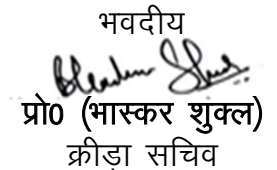 भवदीय
प्रो0 (भास्कर शुक्ल)
क्रीड़ा सचिव